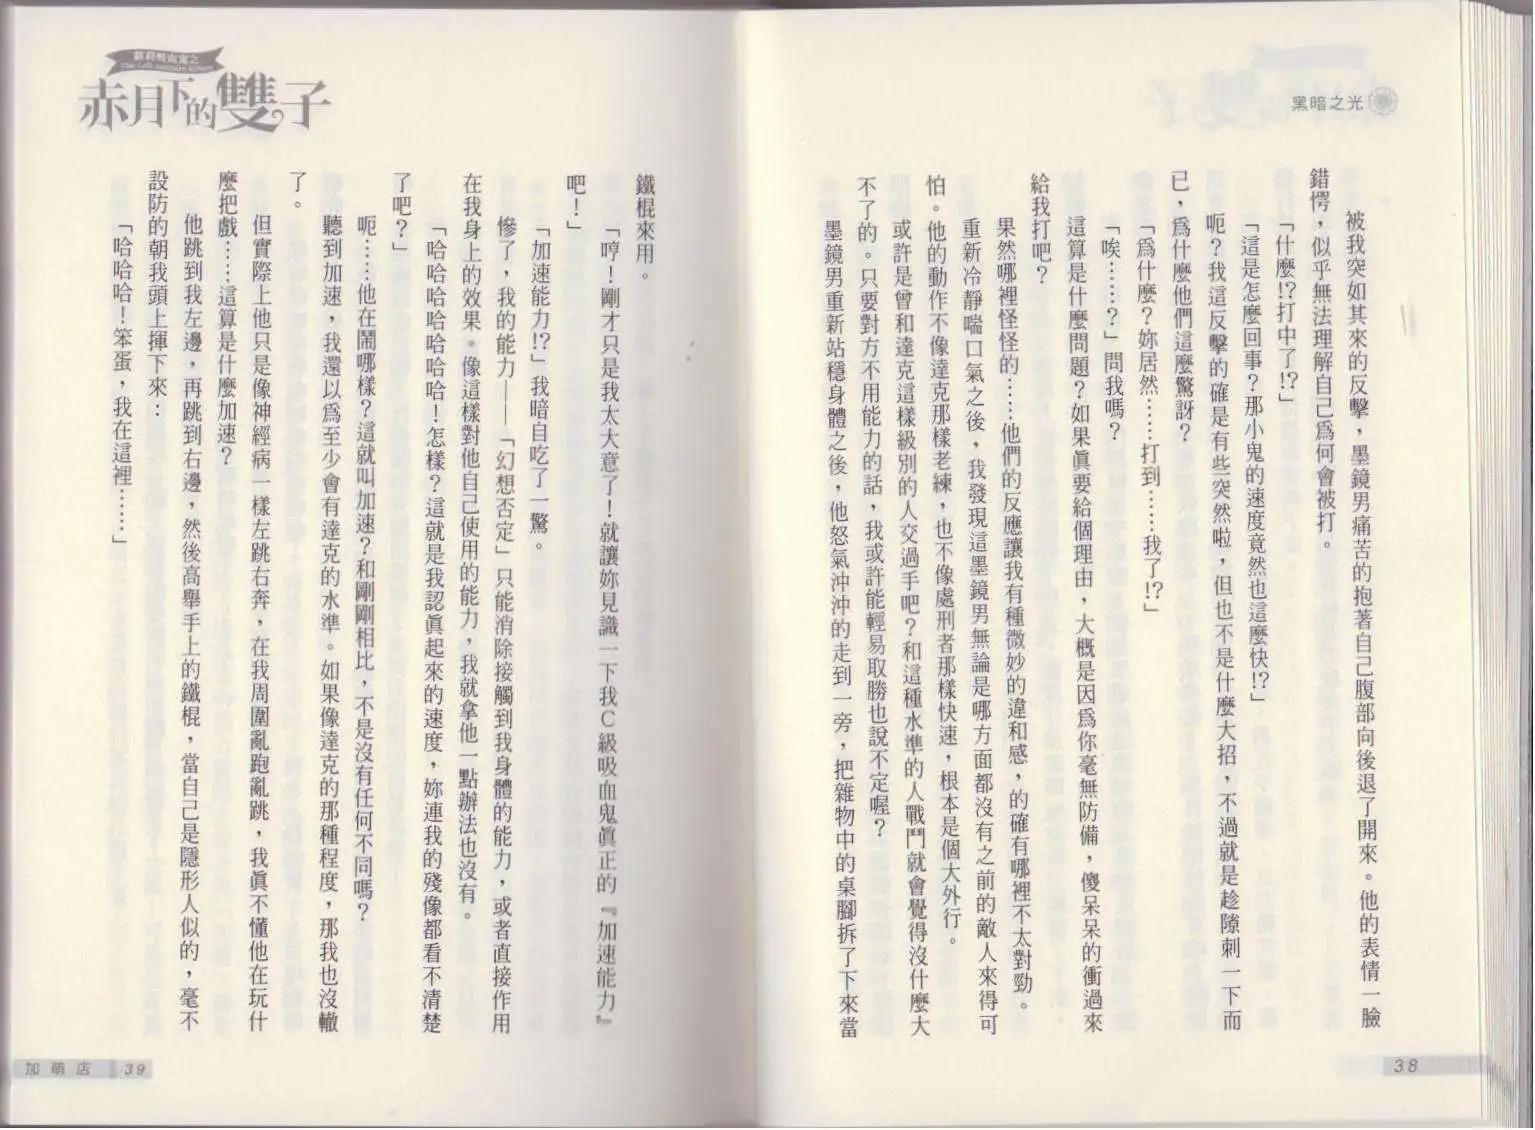 黑暗之光
被我突如其來的反擊，墨鏡男痛苦的抱著自己腹部向後退了開來。他的表情一臉
錯愕，似乎無法理解自己爲何會被打。
「什麼!?打中了!?」
「這是怎麼回事？那小鬼的速度竟然也這麼快!?」
呃？我這反擊的確是有些突然啦，但也不是什麼大招，不過就是趁隙刺一下而
已，爲什麼他們這麼驚訝？
「爲什麼？妳居然……打到……我了!?」
「唉……？」問我嗎？
這算是什麼問題？如果眞要給個理由，大概是因爲你毫無防備，傻呆呆的衝過來
給我打吧？
果然哪裡怪怪的……他們的反應讓我有種微妙的違和感，的確有哪裡不太對勁。
重新冷靜喘口氣之後，我發現這墨鏡男無論是哪方面都沒有之前的敵人來得可
怕。他的動作不像達克那樣老練，也不像處刑者那樣快速，根本是個大外行。
或許是曾和達克這樣級別的人交過手吧？和這種水準的人戰鬥就會覺得沒什麼大
不了的。只要對方不用能力的話，我或許能輕易取勝也說不定喔？
墨鏡男重新站穩身體之後，他怒氣沖沖的走到一旁，把雜物中的桌腳拆了下來當
38
赤月下的雙子
鐵棍來用。
「哼！剛才只是我太大意了！就讓妳見識一下我C級吸血鬼眞正的『加速能力』
吧！」
「加速能力!?」我暗自吃了一驚。
慘了，我的能力——「幻想否定」只能消除接觸到我身體的能力，或者直接作用
在我身上的效果。像這樣對他自己使用的能力，我就拿他一點辦法也沒有。
「哈哈哈哈哈哈哈！怎樣？這就是我認眞起來的速度，妳連我的殘像都看不清楚
了吧？」
呃……他在鬧哪樣？這就叫加速？和剛剛相比，不是沒有任何不同嗎？
聽到加速，我還以爲至少會有達克的水準。如果像達克的那種程度，那我也沒轍
了。
但實際上他只是像神經病一樣左跳右奔，在我周圍亂跑亂跳，我眞不懂他在玩什
麼把戲……這算是什麼加速？
他跳到我左邊，再跳到右邊，然後高舉手上的鐵棍，當自己是隱形人似的，毫不
設防的朝我頭上揮下來：
「哈哈哈！笨蛋，我在這裡……」
加萌店 39